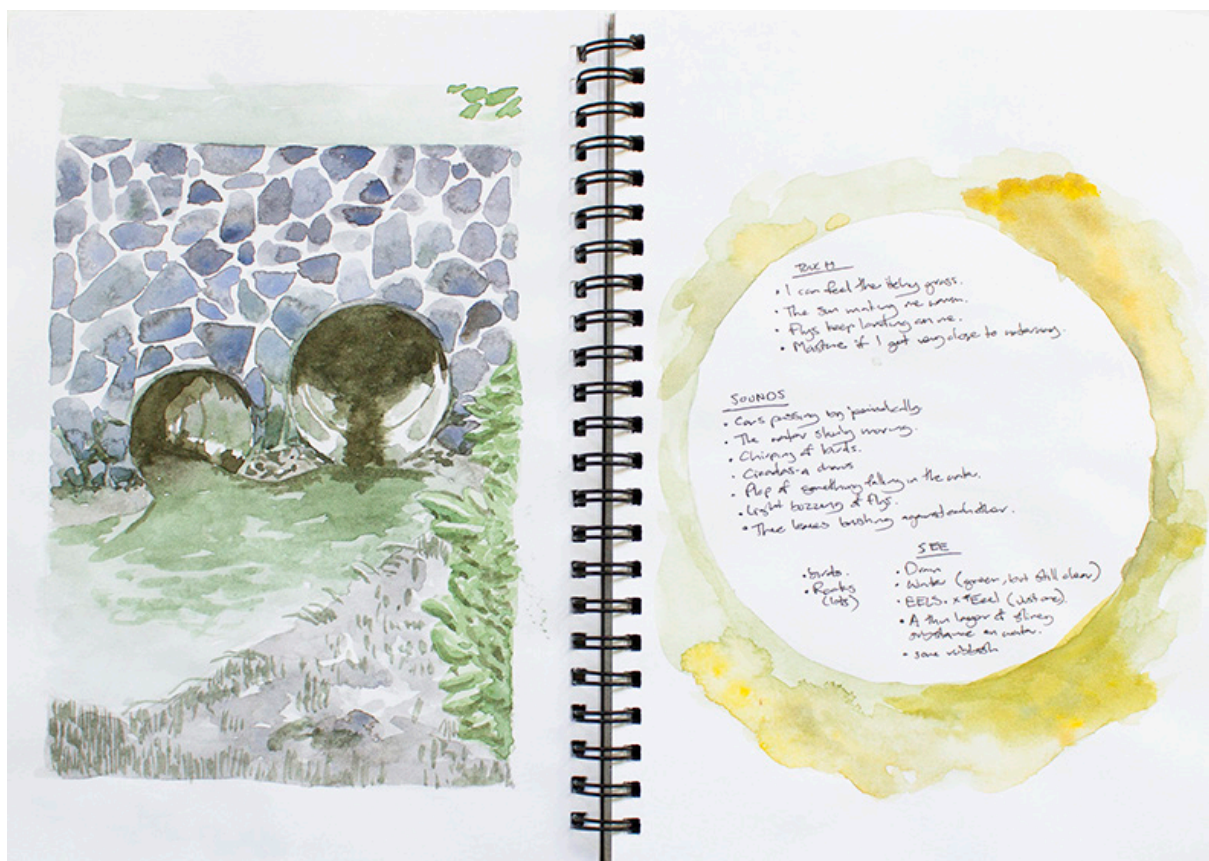 TOUCH
• I can feel the itchy grass.
• The sun making me warm.
• Flys keep landing on me.
• Moisture if I get very close to
SOUNDS
• Cars passing by periodically.
• The water slowly moving.
• Chirping of birds.
• Cicadas
• Plop of something falling in the water.
• Light buzzing of flys.
• Tree leaves brushing against each other.
SEE
• birds.
• Rocks
(lots)
• Drain
• Water (green, but still clear)
• EELS. × Eel (just one)
• A thin layer of slimey
substance on water.
• some rubbish